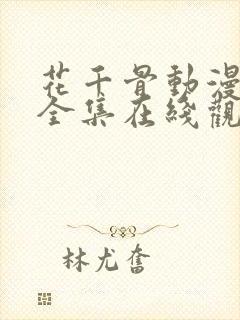 花千骨動漫
全集在綫觀
林尤奮